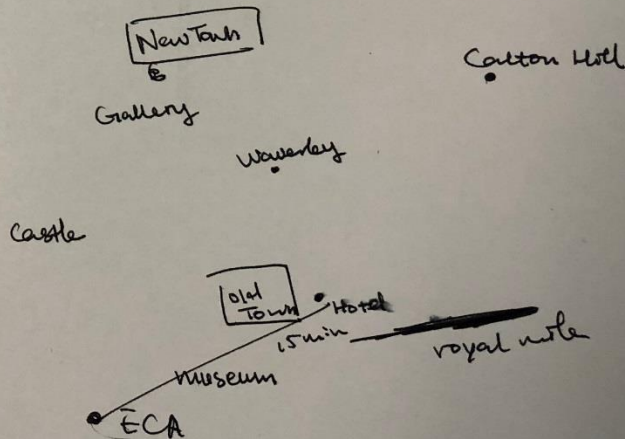 New Town
Calton Hill
Gallery
Waverley
Castle
Old
Town
Hotel
15 min
royal mile
museum
ECA